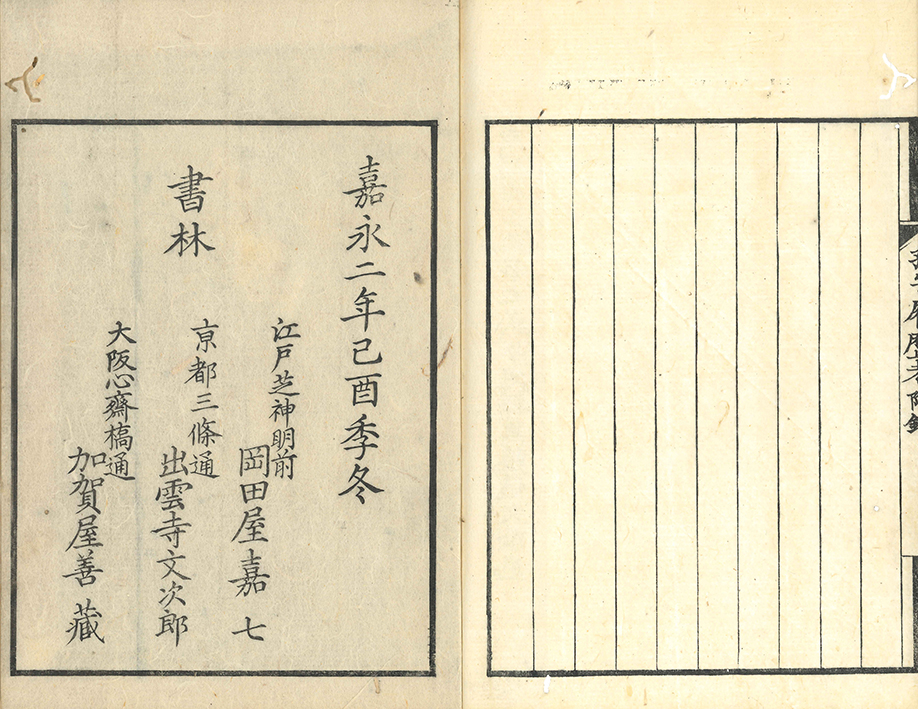 嘉永二年己酉季冬
書林
江戸芝神明前
岡田屋嘉七
亰都三條通
出雲寺文次郎
大阪心齋槗通
加賀屋善藏